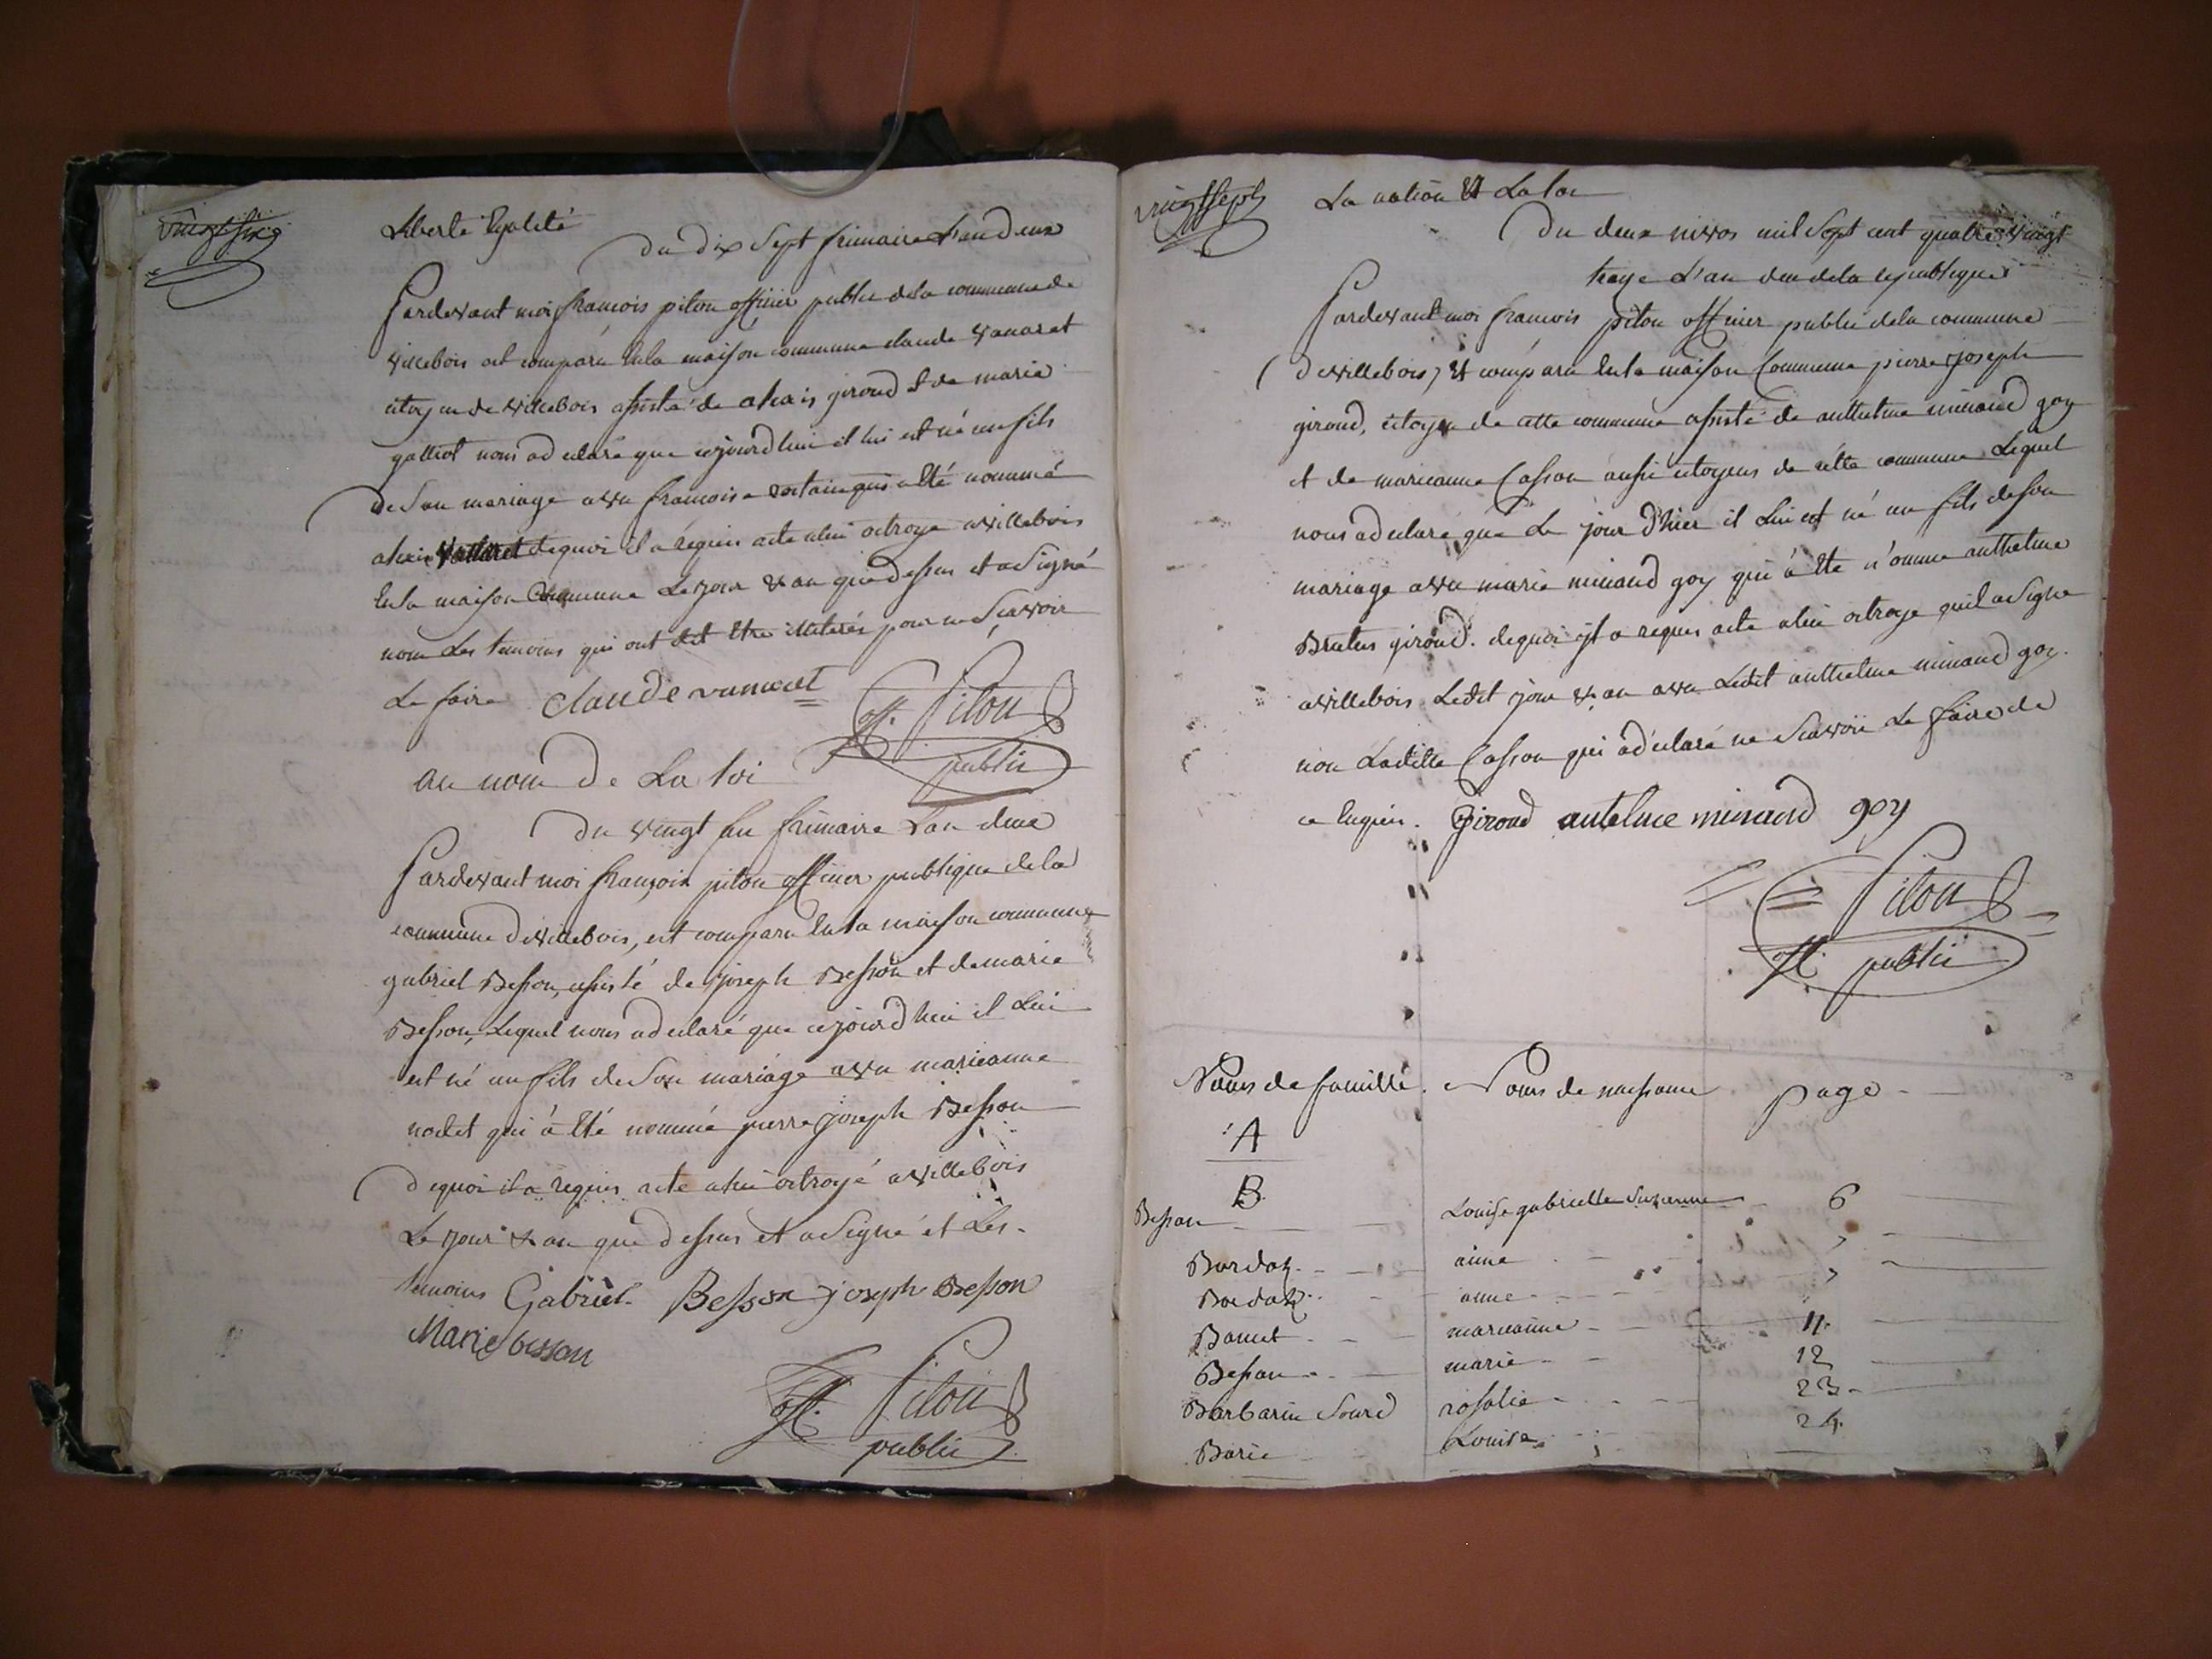 vingt six
Liberté Egalité
du dix Sept frimaire L'an deux
Pardevant moi francois pitou officier public dela commune de
villebois est comparu En la maison commune claude vanaret
citoyen de villebois assisté de alexis giroud & de marie
galliot nous a declaré que cejourd'hui il lui est né un fils
de Son mariage avec francoise qui a Eté nommé
alexis dequoi il a requis acte a lui octroyé a villebois
En la maison Commune Le jour & an que dessus et a Signé
non Les temoins qui ont dit Etre illiterés pour ne Scavoir
Le faire claude vanaret
off. Pitou
public
au nom de La loi
du vingt un frimaire L'an deux
Pardevant moi françois pitou officier publique de la
commune de villebois, est comparu En la maison commune
gabriel Besson, assisté de joseph Besson et de marie
Besson, Lequel nous a declaré que cejourd'hui il Lui
est né un fils de Son mariage avec marieanne
nodet qui à Eté nommé pierre joseph Besson
dequoi il a requis acte a lui octroyé a villebois
Le jour & an que dessus et a Signé et Les
temoins Gabriel Besson joseph Besson
Marie besson
off. Pitou
public
vingt sept
La nation & La loi
du deux nivos mil Sept cent quatre vingt
treze L'an deu dela republique
Pardevant moi francois pitou officier public dela commune
de villebois, Est comparu En la maison Commune pierre joseph
giroud, citoyen de cette commune assisté de anthelme minaud goy
et de marieanne Casson aussi citoyens de cette commune Lequel
nous a declaré que Le jour d'hier il Lui est né un fils de son
mariage avec marie minaud goy qui à Eté n'ommé anthelme
Brutus giroud. dequoi il a requis acte a lui octroyé qu'il a Signé
a villebois Ledit jour & an avec Ledit anthelme minaud goy.
non Laditte Casson qui a déclaré ne Scavoir Le faire de
ce Enquis. Giroud antelme minaud goy
Pitou
off. public
Noms de famille. Noms de naissance page
A
B.
Besson Louise gabrielle Suzanne 6
Bordaz aimé 7
Bordaz anne 7
Bonnet marieanne 11.
Besson marie 12
Barbarin Sourd rosalie 23
Barié Louise 24.